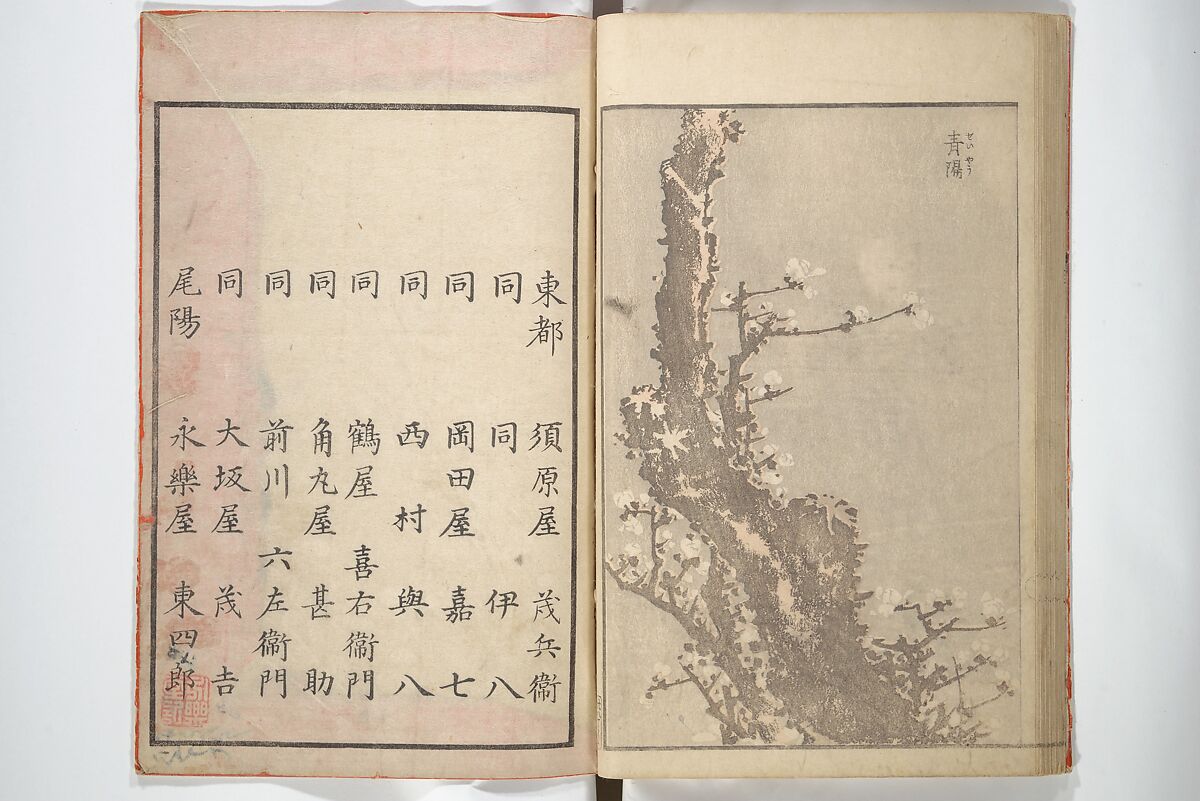 青陽
せいやう
東都 須原屋 茂兵衞
同 同 伊八
同 岡田屋 嘉七
同 西村 與八
同 鶴屋 喜右衞門
同 角丸屋 甚助
同 前川 六左衞門
同 大坂屋 茂吉
尾陽 永樂屋 東四郎